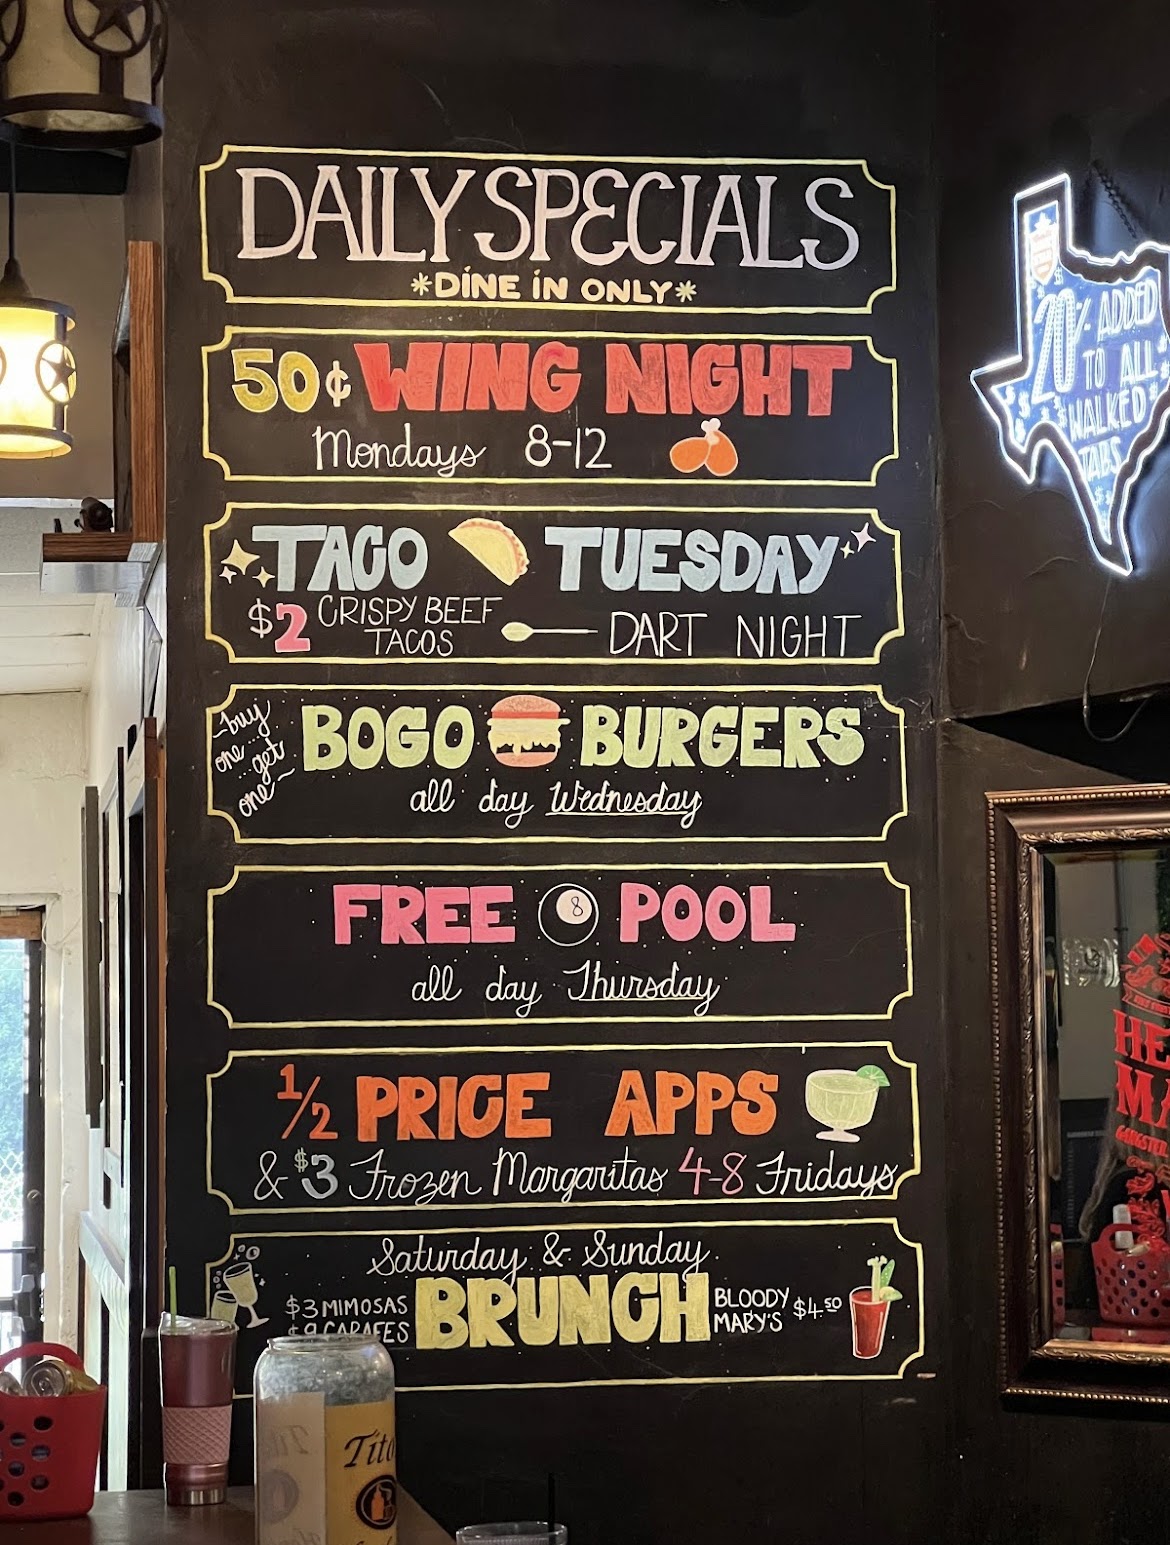 DAILY SPECIALS
*DINE IN ONLY*
50¢ WING NIGHT
Mondays 8-12
TACO TUESDAY
$2 CRISPY BEEF
TACOS
DART NIGHT
~buy
one get
one~
BOGO BURGERS
all day Wednesday
FREE 8 POOL
all day Thursday
1/2 PRICE APPS
& $3 Frozen Margaritas 4-8 Fridays
Saturday & Sunday
BRUNCH
$3 MIMOSAS
$9 CARAFES
BLOODY
MARY'S
$4.50
20% ADDED
TO ALL
WALKED
TABS
HE
MA
Tito